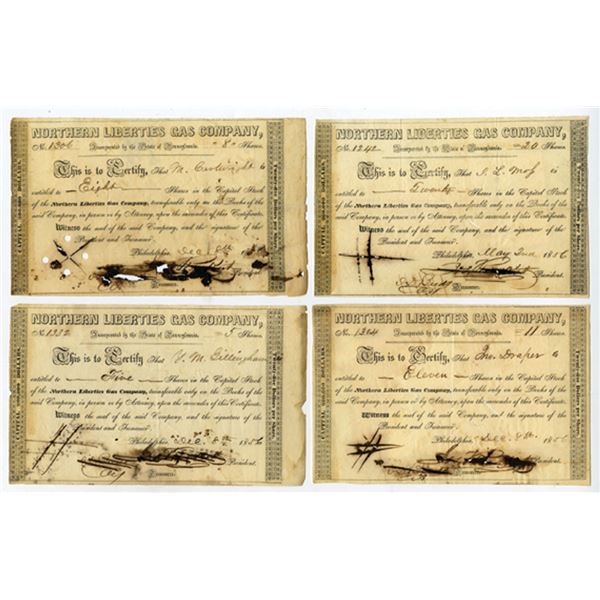 NORTHERN LIBERTIES GAS COMPANY,
No. 1306 Incorporated by the State of Pennsylvania. 8 Shares.
This is to Certify, That M. Cartwright is
entitled to Eight Shares in the Capital Stock
of the Northern Liberties Gas Company, transferable only on the Books of the
said Company, in person or by Attorney, upon the surrender of this Certificate.
Witness the seal of the said Company, and the signature of the
President and Treasurer.
Philadelphia, Dec. 8th
NORTHERN LIBERTIES GAS COMPANY,
No. 1242 Incorporated by the State of Pennsylvania. 20 Shares.
This is to Certify, That is
entitled to Twenty Shares in the Capital Stock
of the Northern Liberties Gas Company, transferable only on the Books of the
said Company, in person or by Attorney, upon the surrender of this Certificate.
Witness the seal of the said Company, and the signature of the
President and Treasurer.
Philadelphia, May 2nd 1856
President.
Treasurer.
NORTHERN LIBERTIES GAS COMPANY,
No. Incorporated by the State of Pennsylvania. 5 Shares.
This is to Certify, That M. Gillingham is
entitled to Five Shares in the Capital Stock
of the Northern Liberties Gas Company, transferable only on the Books of the
said Company, in person or by Attorney, upon the surrender of this Certificate.
Witness the seal of the said Company, and the signature of the
President and Treasurer.
Philadelphia, Dec. 8th 1856
President.
Treasurer.
NORTHERN LIBERTIES GAS COMPANY,
No. 1304 Incorporated by the State of Pennsylvania. 11 Shares.
This is to Certify, That Jno. Draper is
entitled to Eleven Shares in the Capital Stock
of the Northern Liberties Gas Company, transferable only on the Books of the
said Company, in person or by Attorney, upon the surrender of this Certificate.
Witness the seal of the said Company, and the signature of the
President and Treasurer.
Philadelphia, Dec. 8th 1856
President.
Treasurer.